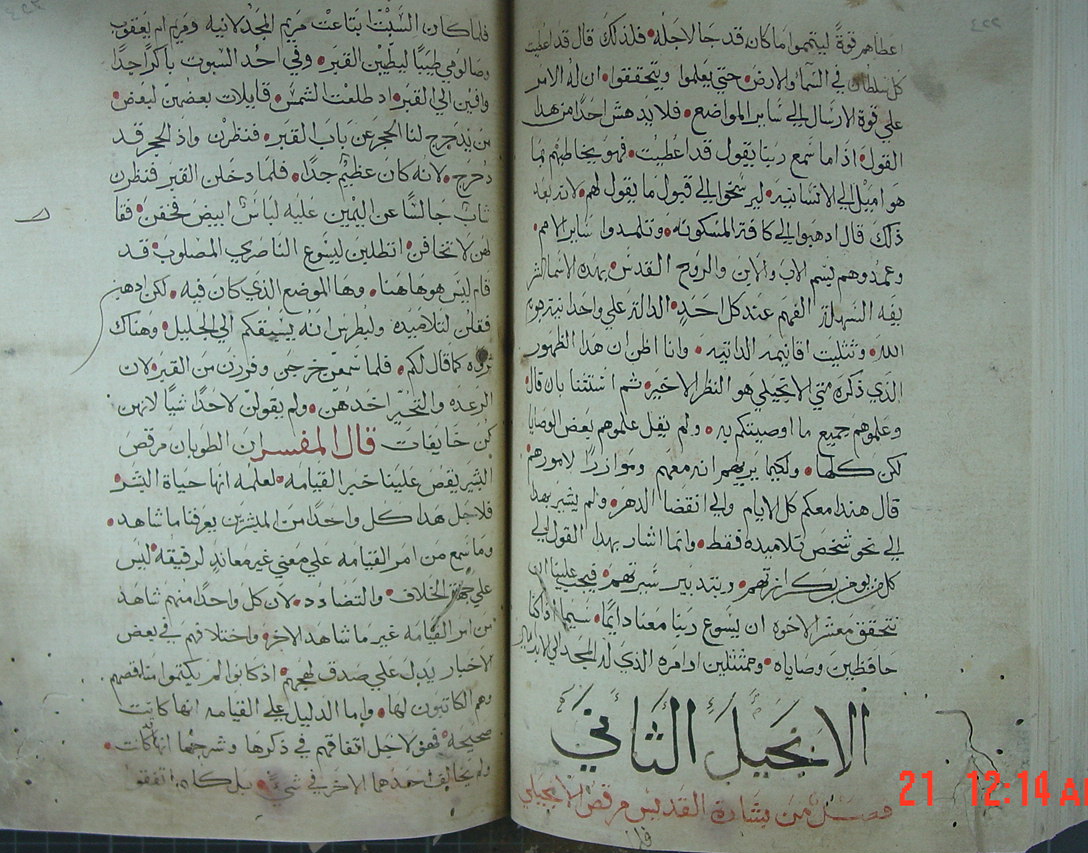 ٢٢٤
اعطاهم قوةً ليتمموا ما كان قد جا لاجله• فلذلك قال قد اعطيت
كل سلطان في السما والارض• حتي يعلموا ويتحققوا• ان له الامر
علي قوة الارسال الي ساير المواضع• فلا يدهش احدًا من هدا
القول• اذا ما سمع ربنا يقول قد اعطيت• فهو يخاطبهم بما
هو اميل الي الانسانيه• ليرسخوا الي قبول ما يقول لهم• لانه بعد
ذلك قال ادهبوا الي كافة المسكونه• وتلمدوا ساير الامم•
وعمدوهم بسم الاب والابن والروح القدس• بهده الاسما
السهلة الفهم عند كل احدٍ• الدالة علي واحدانية جوهر
الله• وتثليت اقانيمه الداتيه• وانا اظن ان هذا الظهور
الذي ذكره متي الانجيلي هو النظر الاخير• ثم استتنا بان قال
وعلموهم جميع ما اوصيتكم به• ولم يقل علموهم بعض الوصايا
لكن كلها• ولكيما يريهم انه معهم وموازرًا لامورهم
قال هندا معكم كل الايام والي انقضا الدهر• ولم يشير بهدا
الي نحو شخص تلاميده فقط• وانما اشار بهدا القول الي
كل من يومن بكرازتهم• ويتدبير سيرتهم• فيجب علينا ان
نتحقق معشر الاخوه ان يسوع ربنا معنا دايمًا• سيما اذا كنا
حافظين وصاياه• وممتثلين اوامره الذي له المجد الي الابد
الانجيل الثاني
فصل من بشارة القديس مرقص الانجيلي
21 12:14 AM
فلما كان السبت ابتاعت مريم المجدلانيه ومريم ام يعقوب
وصالومي طيبًا ليطيبن القبر• وفي احد السبوت باكرًا جدًا
وافين الي القبر• اد طلعت الشمس• قايلات بعضهن لبعض•
من يدحرج لنا الحجر عن باب القبر• فنظرن واذ الحجر قد
دحرج• لانه كان عظيم جدًا• فلما دخلن القبر فنظرن
شاب جالسًا عن اليمين عليه لباس ابيض فخفن• فقا
لهن لا تخافن• اتطلبن ليسوع الناصري المصلوب قد
قام ليس هو هاهنا• وها الموضع الذي كان فيه• لكن ادهبن
فقلن لتلاميده ولبطرس انه يسبقكم الي الجليل• وهناك
تروه كما قال لكم• فلما سمعن خرجن وفررن من القبر• لان
الرعده والتحير اخدهن• ولم يقولن لاحدًا شيًا لانهن
كن خايفات قال المفسر ان الطوبان مرقص
البشير يقص علينا خبر القيامه• لعلمه انها حياة البشر•
فلاجل هدا كل واحدًا من المبشرين يعرفنا ما شاهد•
وما سمع من امر القيامه علي معني غير معاندٍ لرفيقه• ليس
علي جهة الخلاف• والتضادد• لان كل واحدًا منهم شاهد
من امر القيامه غير ما شاهد الاخر• واختلافهم في بعض
الاخبار يدل علي صدق لهجتهم• اذ كانوا لم يكتموا مناقصهم
وهم الكاتبون لها• واما الدليل علي القيامه انها كانت
صحيحه• فهو لاجل اتفاقهم في ذكرها وشرحهما انها كانت•
ولم يخالف احدهما الاخر في شيً• بل كلهم اتفقو